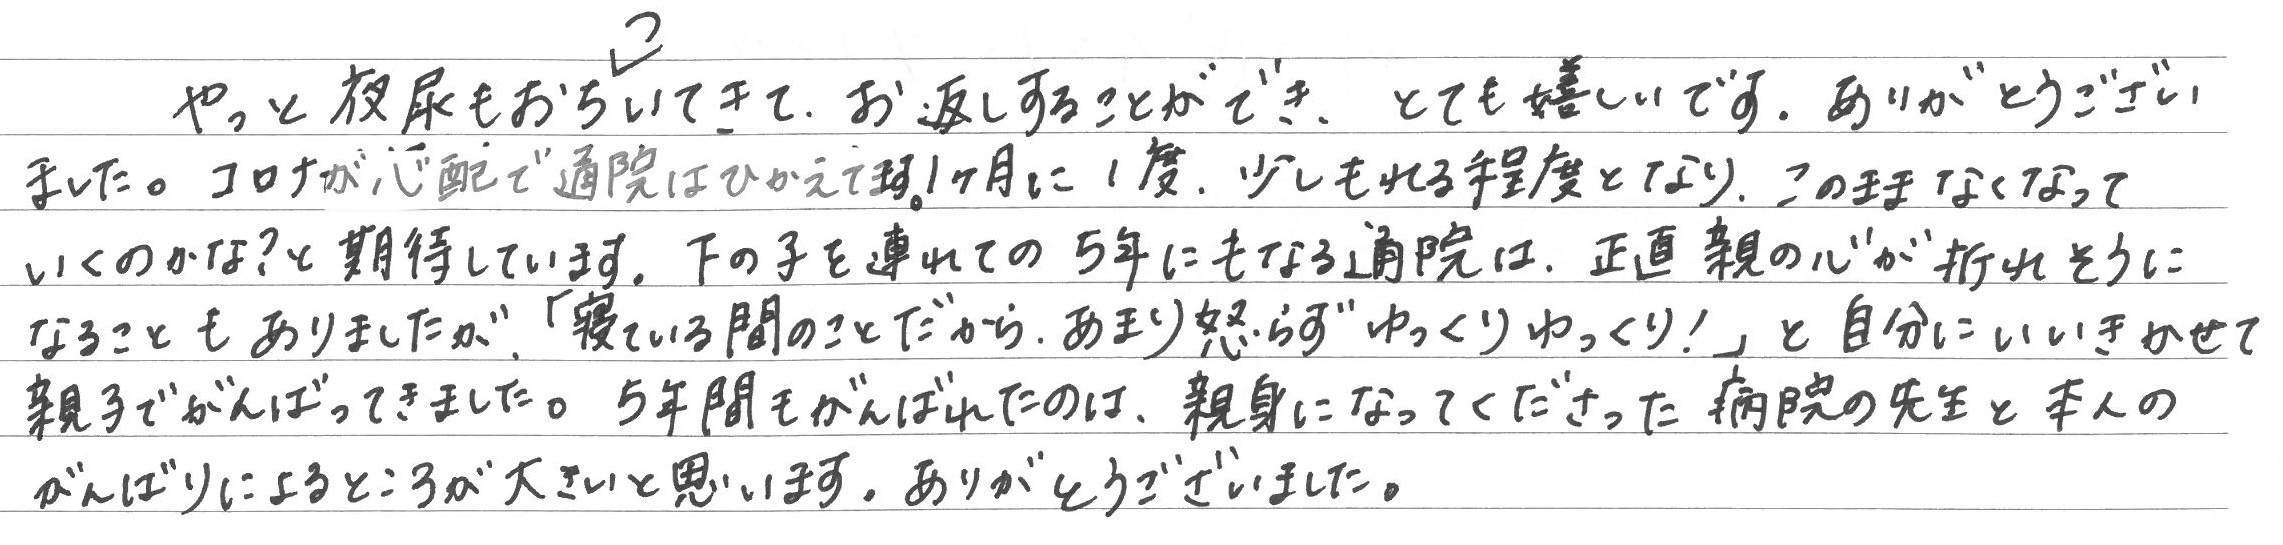 やっと夜尿もおちついてきて、お返しすることができ、とても嬉しいです。ありがとうござい
ました。コロナが心配で通院はひかえてます。1ヶ月に1度、少しもれる程度となり、このままなくなって
いくのかな?と期待しています。下の子を連れての5年にもなる通院は、正直親の心が折れそうに
なることもありましたが、「寝ている間のことだから、あまり怒らずゆっくりゆっくり!」と自分にいいきかせて
親子でがんばってきました。5年間もがんばれたのは、親身になってくださった病院の先生と本人の
がんばりによるところが大きいと思います。ありがとうございました。